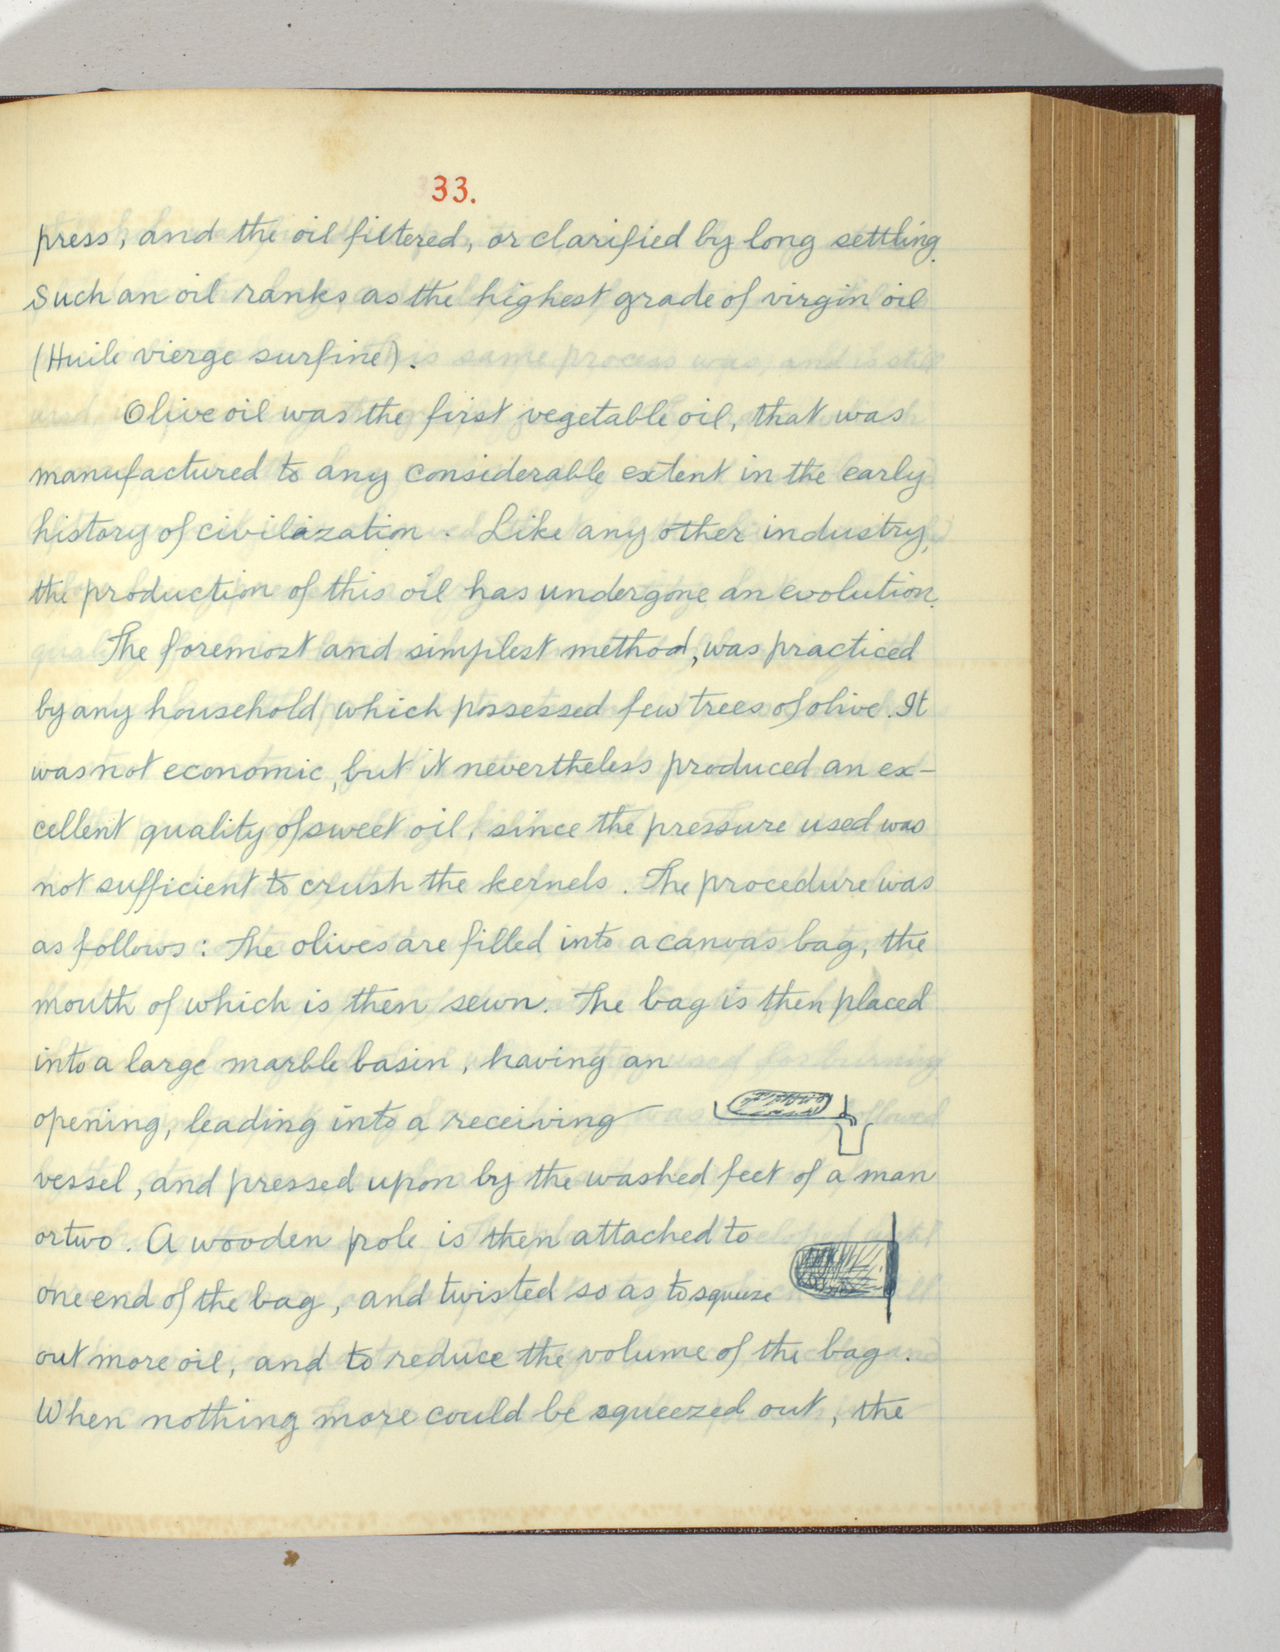 33.
press, and the oil filtered, or clarified by long settling.
Such an oil ranks as the highest grade of virgin oil
(Huile vierge surfine).
Olive oil was the first vegetable oil, that was
manufactured to any considerable extent in the early
history of civilazation. Like any other industry,
the production of this oil has undergone an evolution.
The foremost and simplest method, was practiced
by any household, which possessed few trees of olive. It
was not economic, but it nevertheless produced an ex-
cellent quality of sweet oil, since the pressure used was
not sufficient to crush the kernels. The procedure was
as follows: The olives are filled into a canvas bag, the
mouth of which is then sewn. The bag is then placed
into a large marble basin, having an
opening, leading into a receiving
vessel, and pressed upon by the washed feet of a man
or two. A wooden pole is then attached to
one end of the bag, and twisted so as to squeeze
out more oil, and to reduce the volume of the bag.
When nothing more could be squeezed out, the